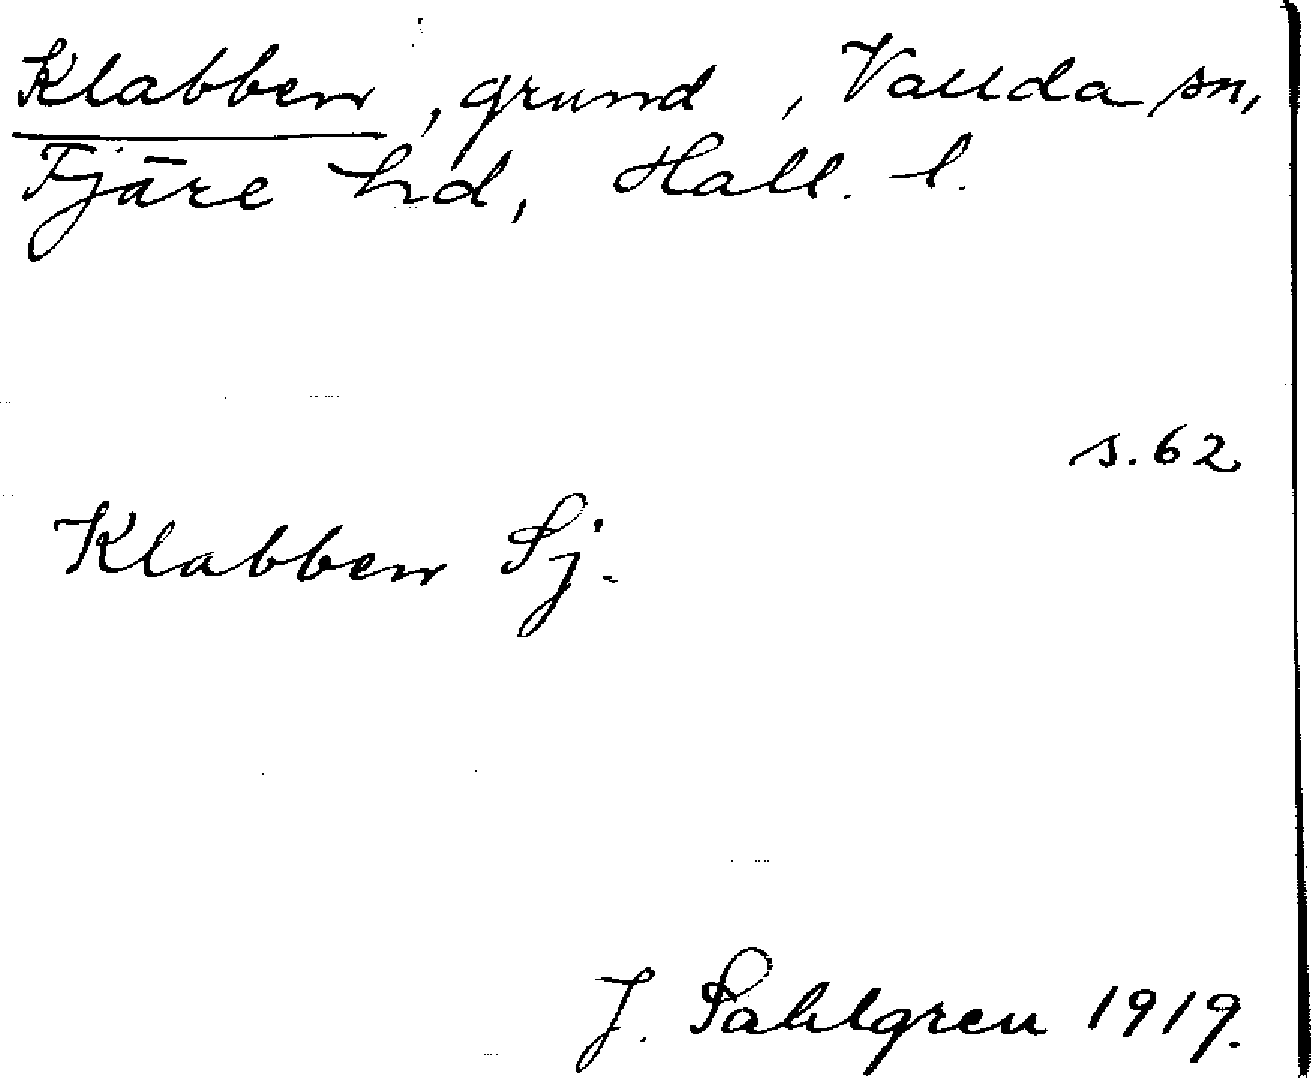 Klabben, grund, Vallda sn,
Fjäre hd, Hall. l.
s. 62
Klabben Sj.
J. Sahlgren 1919.